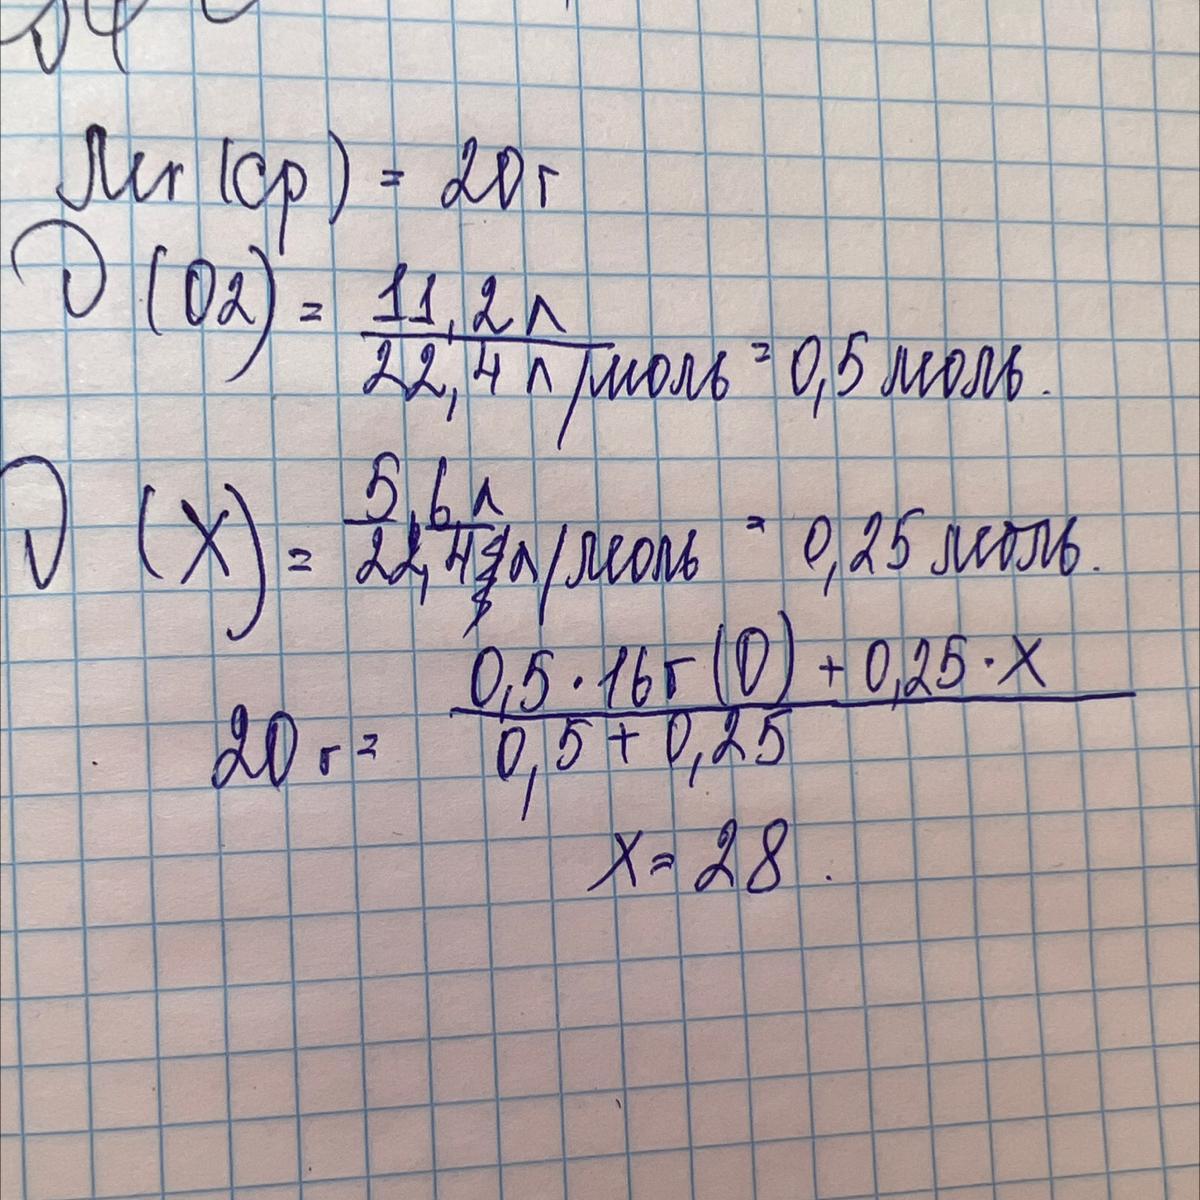 Mr (ср) = 20 г
ν (O2) = 11,2 л / 22,4 л/моль = 0,5 моль.
ν (X) = 5,6 л / 22,4 л/моль = 0,25 моль.
20 г = 0,5 · 16 г (O) + 0,25 · X / 0,5 + 0,25
X = 28.